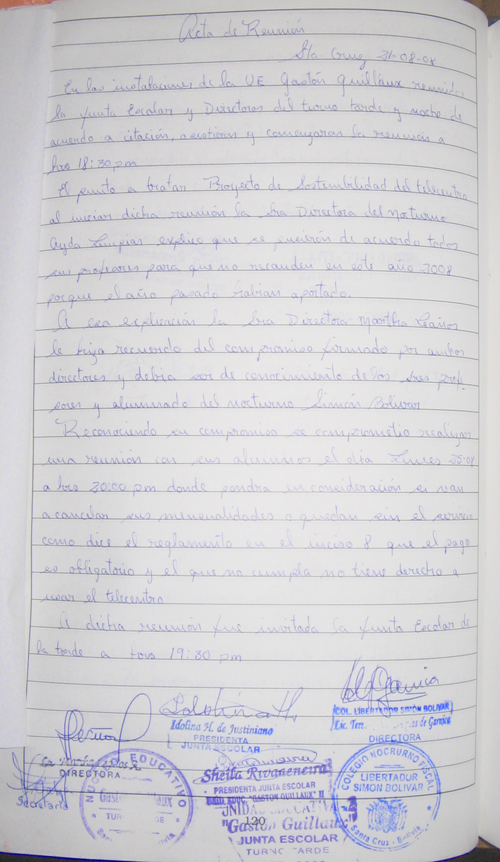 Acta de Reunión
Sta Cruz 21-08-08
En las instalaciones de la UE Gastón Guillaux reunidos
la Junta Escolar y Directoras del turno tarde y noche de
acuerdo a citación, asistieron y comenzaron la reunión a
hrs 18:30 pm
El punto a tratar Proyecto de Sostenibilidad del telecentro
al iniciar dicha reunión la Sra Directora del Nocturno
explico que se de acuerdo todos
sus profesores para que no recauden en este año 2008
porque el año pasado habian aportado.
A esa explicación la Sra Directora Martha Baños
le hizo recuerdo del compromiso firmado por ambos
directores y debia ser de conocimiento de los Sres prof
esores y alumnado del nocturno Simón Bolivar
Reconociendo su compromiso se comprometio realizar
una reunión con sus alumnos el dia Lunes 25-08
a hrs 20:00 pm donde pondra en consideración si van
a cancelar sus mensualidades o quedan sin el servicio
como dice el reglamento en el inciso 8 que el pago
es obligatorio y el que no cumpla no tiene derecho a
usar el telecentro
A dicha reunión fue invitada la Junta Escolar de
la tarde a hrs 19:30 pm
Idolina H. de Justiniano
PRESIDENTA
JUNTA ESCOLAR
COL. LIBERTADOR SIMON BOLIVAR
Lic. de Garnica
DIRECTORA
DIRECTORA
Secretaria
EDUCATIVO
Sheila Rivaneneira
PRESIDENTA JUNTA ESCOLAR
"GASTON GUILLAUX" II
UNIDAD EDUCATIVA
"Gastón Guillaux"
JUNTA ESCOLAR
TURNO TARDE
130
COLEGIO NOCTURNO FISCAL
LIBERTADOR
SIMON BOLIVAR
Santa Cruz - Bolivia